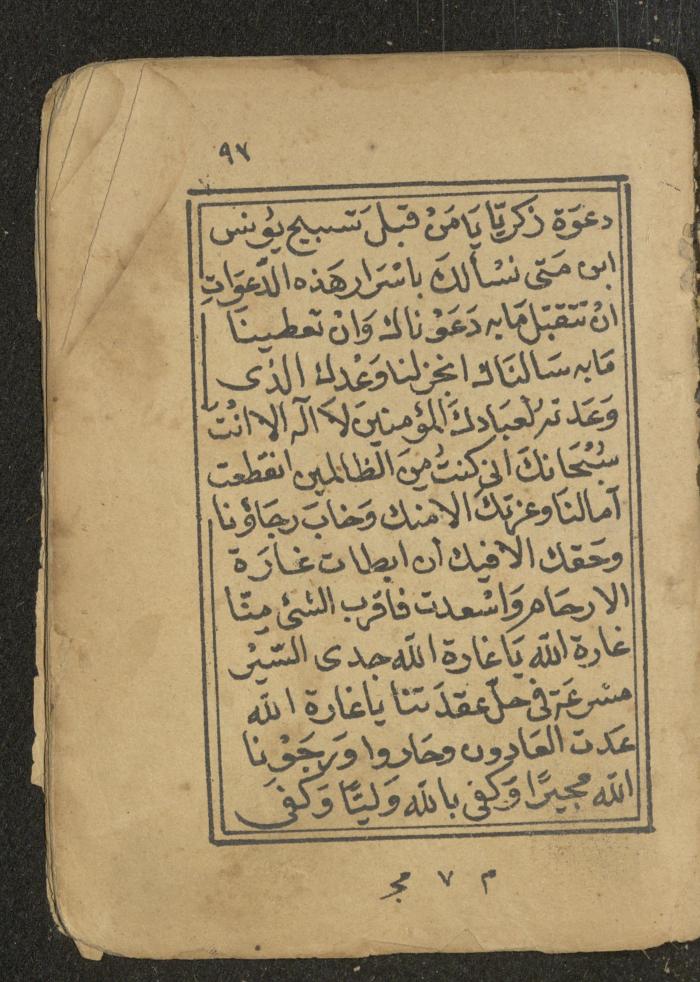 ٩٧
دعَوَة زَكريّا يَا مَنْ قبلَ تسبيح يوُنس
ابن مَتى نسْألكَ باسْرَار هَذه الدَّعوَاتِ
انْ تتقبّل مَا به دَعَوْناك وَانْ تعطينَا
مَا به سَالنَاك انجز لنا وَعْدك الذى
وَعَدته لعبَادكَ المؤمنينَ لا اله الا انْتَ
سُبْحَانكَ انى كنتُ مِنَ الظالمين انقطعت
آمالنَا وعزتكَ الا منك وَخابَ رجَاؤنا
وحَقك الا فيك ان ابطات غارَة
الارحَام وَاسْعدت فاقرب الشئ مِنّا
غارة الله يَا غارة الله جدى السَّيْر
مسْرعَة فى حلّ عقدَتنا يا غارة الله
عَدت العَادون وجَاروا وَرجَوْنا
الله مجيرًا وَكفى بالله وَليّا وَكفىَ
م ٧ مج